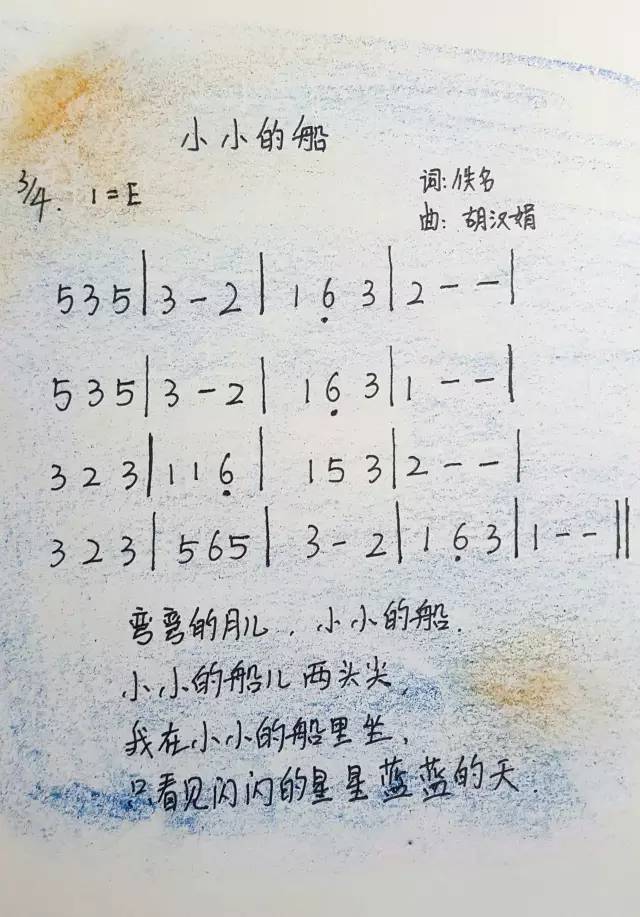 小小的船
3/4. 1=E
词:佚名
曲:胡汉娟
5 3 5 | 3 - 2 | 1 6̣ 3 | 2 - - |
5 3 5 | 3 - 2 | 1 6̣ 3 | 1 - - |
3 2 3 | 1 1 6̣ | 1 5 3 | 2 - - |
3 2 3 | 5 6 5 | 3 - 2 | 1 6̣ 3 | 1 - - ||
弯弯的月儿、小小的船.
小小的船儿两头尖,
我在小小的船里坐,
只看见闪闪的星星蓝蓝的天.